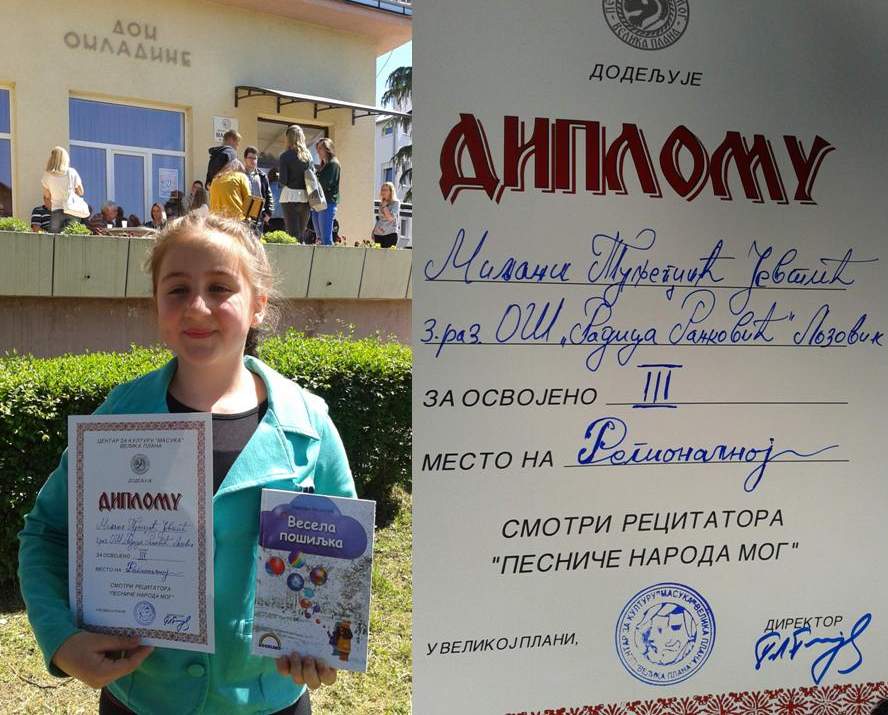 ДОМ
ОМЛАДИНЕ
ЦЕНТАР ЗА КУЛТУРУ "МАСУКА"
ВЕЛИКА ПЛАНА
ДОДЕЉУЈЕ
ДИПЛОМУ
ЗА ОСВОЈЕНО III
МЕСТО НА Регионалној
СМОТРИ РЕЦИТАТОРА
"ПЕСНИЧЕ НАРОДА МОГ"
Весела
пошиљка
ВЕЛИКА ПЛАНА
ДОДЕЉУЈЕ
ДИПЛОМУ
Милани Туфегџић Јевтић
3. раз. ОШ „Радица Ранковић" Лозовик
ЗА ОСВОЈЕНО III
МЕСТО НА Регионалној
СМОТРИ РЕЦИТАТОРА
"ПЕСНИЧЕ НАРОДА МОГ"
У ВЕЛИКОЈ ПЛАНИ,
ЦЕНТАР ЗА КУЛТУРУ "МАСУКА" ВЕЛИКА ПЛАНА
ДИРЕКТОР